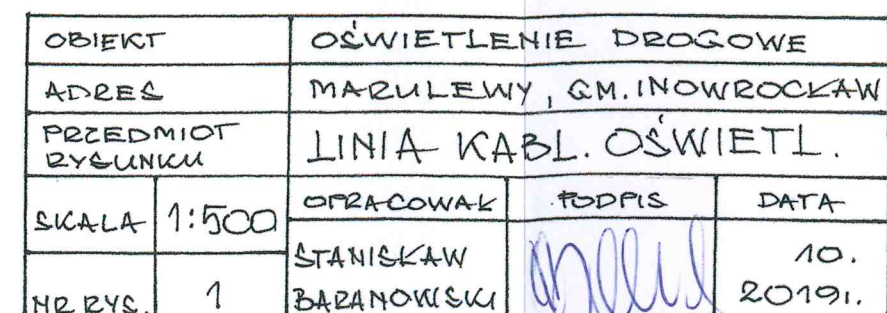 OBIEKT OŚWIETLENIE DROGOWE
ADRES MARULEWY, GM. INOWROCŁAW
PRZEDMIOT
RYSUNKU
LINIA KABL. OŚWIETL.
SKALA 1:500
OPRACOWAŁ PODPIS DATA
STANISŁAW
BARANOWSKI
10.
2019r.
NR RYS. 1